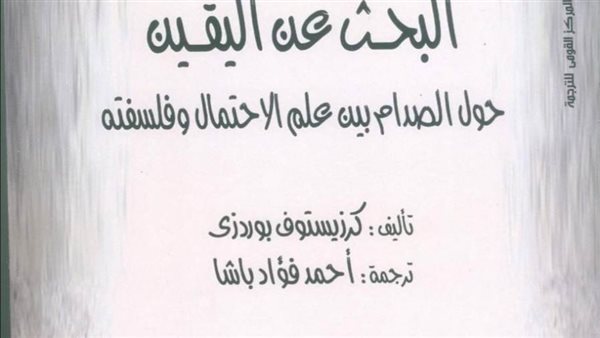 البحث عن اليقين
حول الصدام بين علم الاحتمال وفلسفته
تأليف: كرزيستوف بوردزى
ترجمة: أحمد فؤاد باشا
المركز القومى للترجمة